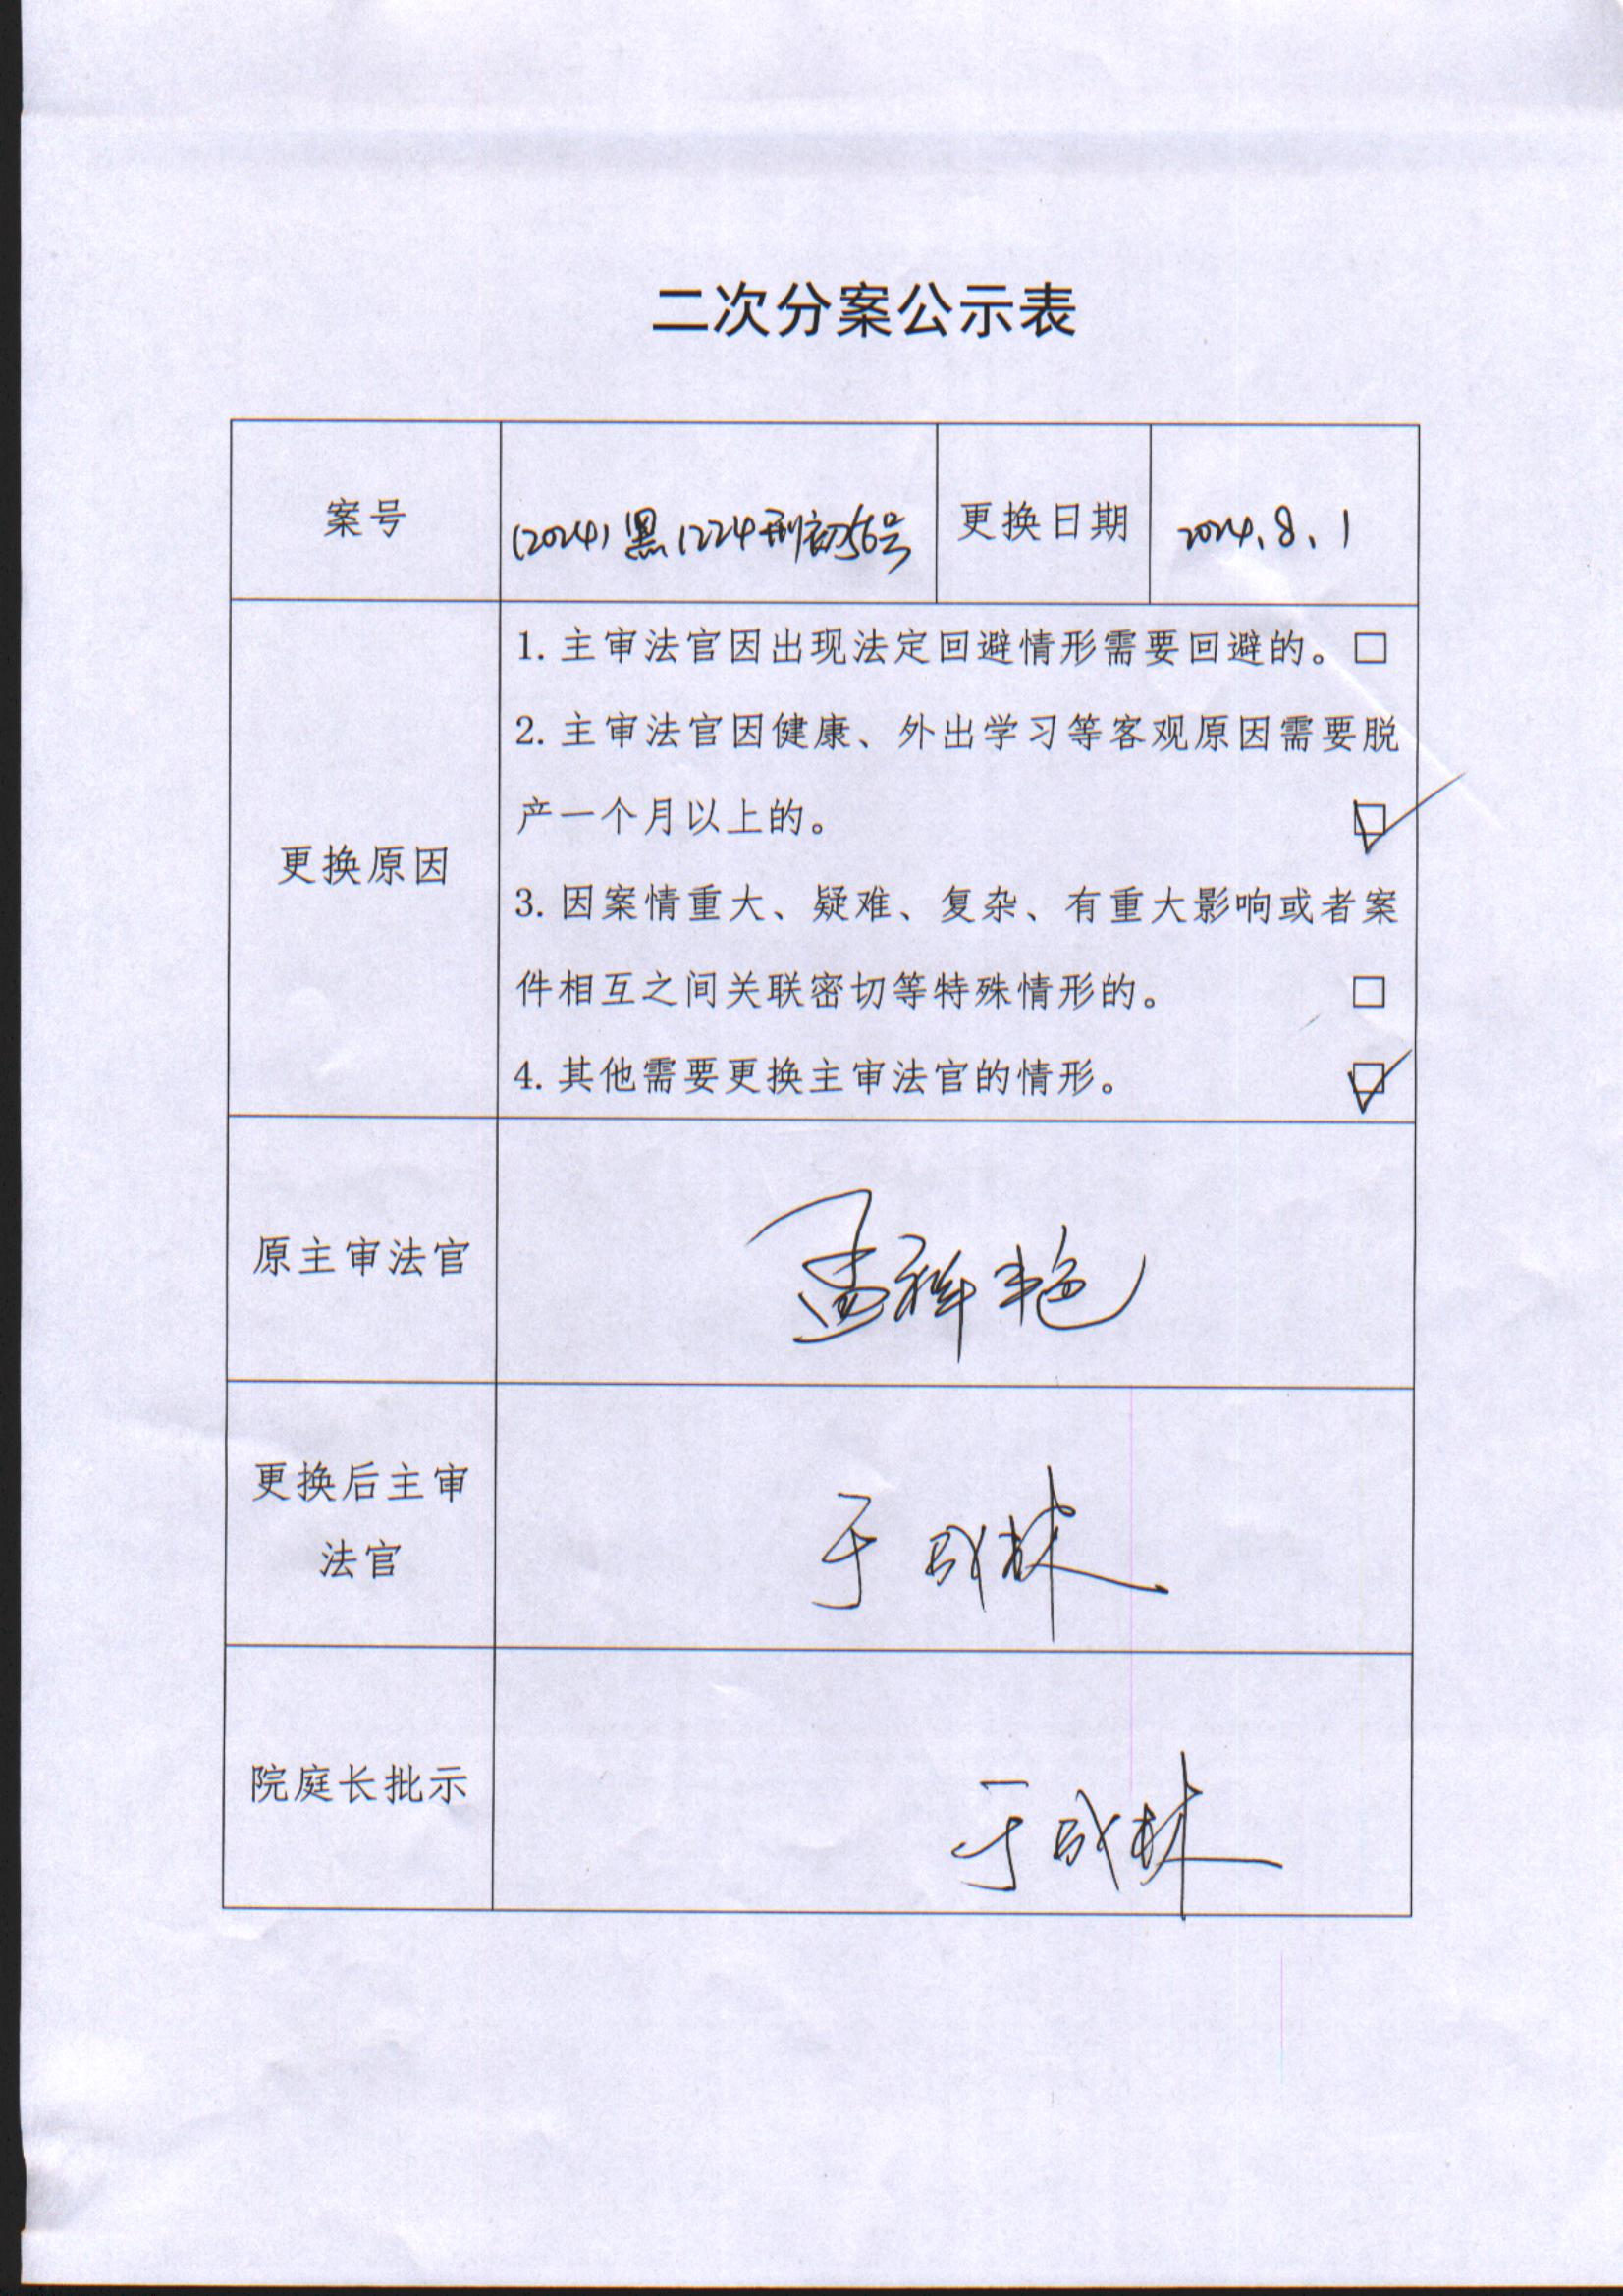 二次分案公示表
案号
(2024)黑1224刑初56号
更换日期
2024.8.1
更换原因
1.主审法官因出现法定回避情形需要回避的。□
2.主审法官因健康、外出学习等客观原因需要脱
产一个月以上的。☑
3.因案情重大、疑难、复杂、有重大影响或者案
件相互之间关联密切等特殊情形的。□
4.其他需要更换主审法官的情形。☑
原主审法官
孟祥艳
更换后主审
法官
于成林
院庭长批示
于成林